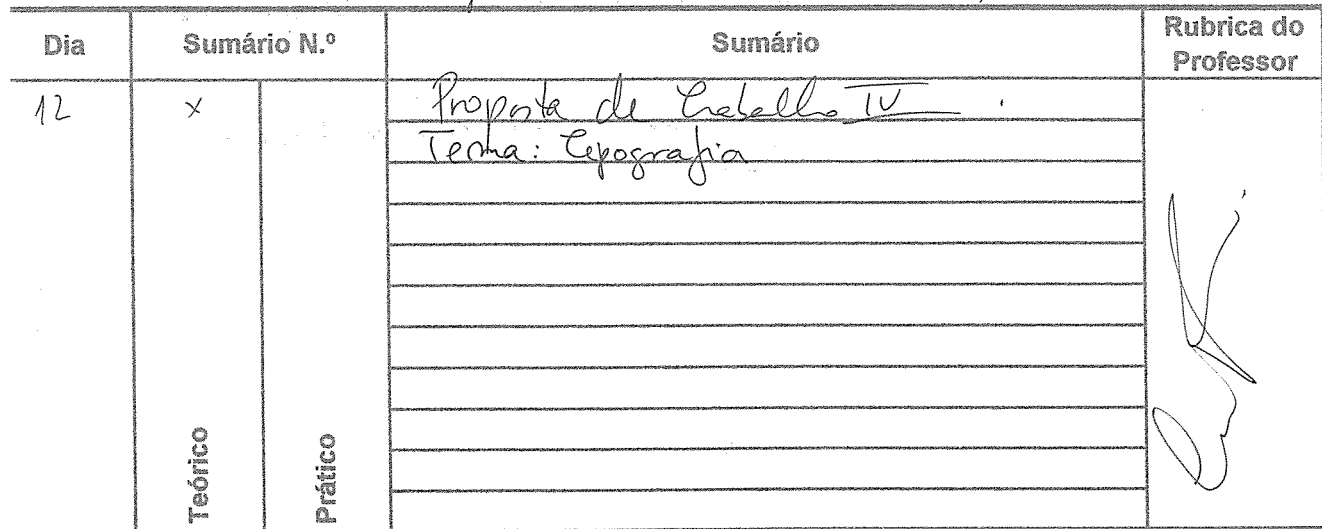 Dia Sumário N.º Sumário Rubrica do Professor
12 x Proposta de Trabalho IV .
Tema: Tipografia
Teórico Prático